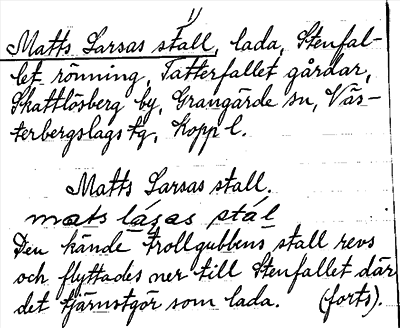 11
Matts Larsas stall, lada, Stenfal-
let rönning, Tatterfallet gårdar,
Skattlösberg by, Grangärde sn, Väs-
terbergslags tg, Kopp l.
Matts Larsas stall.
mats lásas stál
Den kände trollgubbens stall revs
och flyttades ner till Stenfallet där
det tjänstgör som lada. (forts).